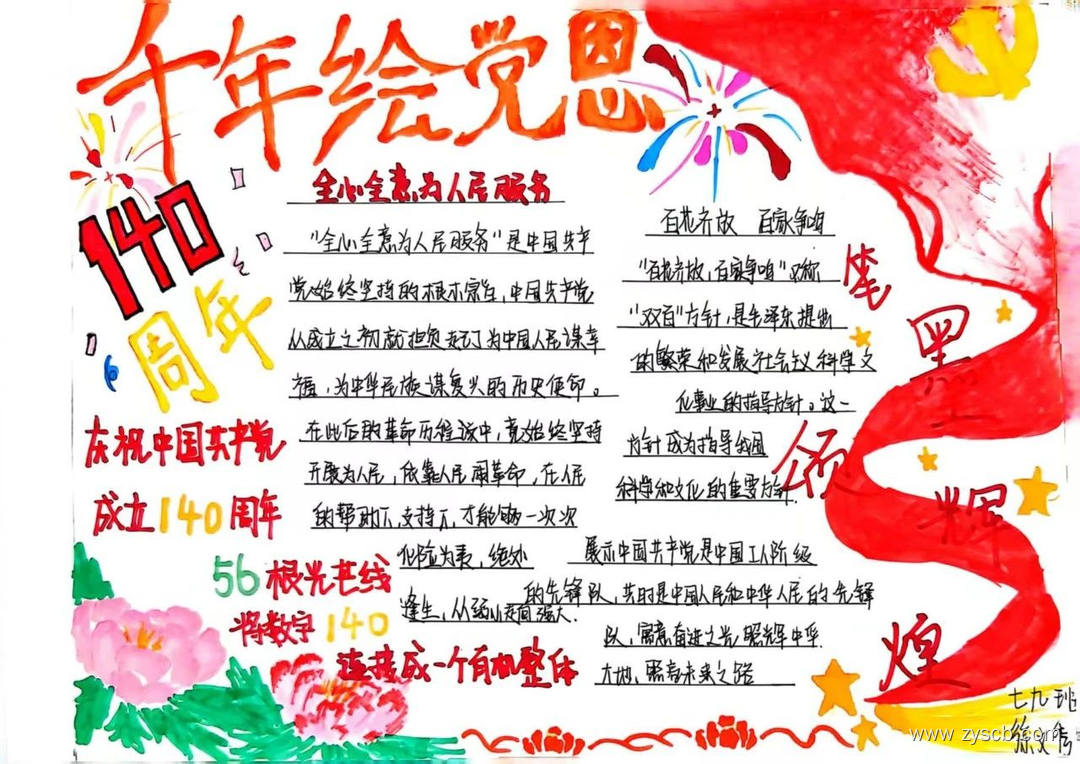 千年绘党恩
140
周年
庆祝中国共产党
成立140周年
56根光芒线
将数字140
连接成一个有机整体
全心全意为人民服务
"全心全意为人民服务"是中国共产
党始终坚持的根本宗旨,中国共产党
从成立之初就担负起了为中国人民谋幸
福,为中华民族谋复兴的历史使命。
在此后的革命历程该中,党始终坚持
开展为人民,依靠人民闹革命,在人民
的帮助下,支持下,才能够一次次
化险为夷,绝处
逢生,从弱小走向强大.
百花齐放 百家争鸣
"百花齐放,百家争鸣"又称
"双百"方针,是毛泽东提出
的繁荣和发展社会主义科学文
化事业的指导方针。这一
方针成为指导我国
科学和文化的重要方针.
展示中国共产党是中国工人阶级
的先锋队,共时是中国人民和中华人民的先锋
队,寓意奋进之光照辉中华
大地,照着未来之路
笔墨颂辉煌
七九班
徐文
www.zyscb.com